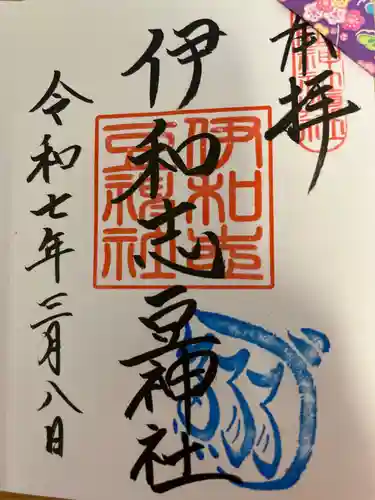 奉拝
伊和志豆神社
伊和志豆神社
令和七年三月八日